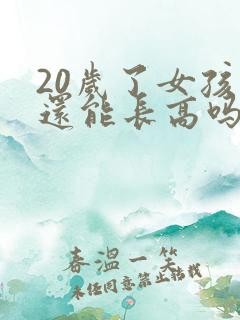 20歲了女孩
還能長高吗
春溫一笑
未經同意禁止轉載